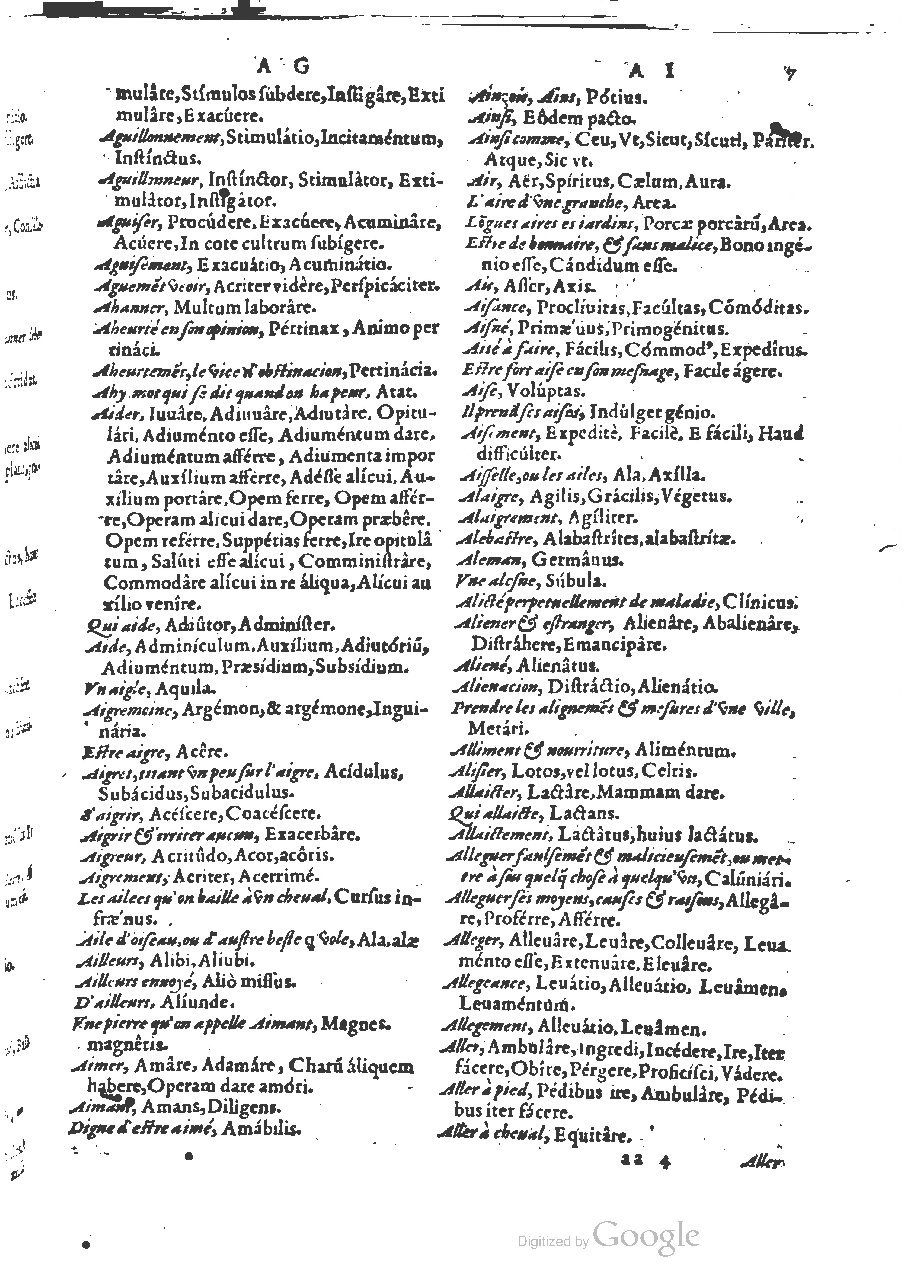 A G
mulâre,Stímulos ſubdere,Inſtigâre,Exti
muláre,Exacúere.
Aguillonnement,Stimulátio,Incitaméntum,
Inſtínctus.
Aguillonneur, Inſtínctor, Stimulâtor, Exti-
mulâtor,Inſtigâtor.
Aguiſer, Procúdere,Exacúere,Acuminâre,
Acúere,In cote cultrum ſubígere.
Aguiſement, Exacuátio,Acuminátio.
Aguemēt veoir, Acriter vidêre,Perſpicáciter.
Ahanner, Multum laborâre.
Aheurté en ſon opinion, Péttinax, Animo per
tináci.
Aheurtemēt,le vice d'obſtinacion,Pertinácia.
Ahy, mot qui ſe dit quand on ha peur, Atat.
Aider, Iuuâre,Adiuuâre,Adiutâre, Opitu-
lári, Adiuménto eſſe, Adiuméntum dare,
Adiuméntum afférre, Adiumenta impor
târe,Auxílium afférre, Adéſſe alícui, Au-
xílium portâre,Opem ferre, Opem affér-
re,Operam alicui dare,Operam præbêre,
Opem reférre,Suppétias ferre,Ire opitulâ
tum, Salúti eſſe alícui, Comminiſtrâre,
Commodâre alícui in re áliqua,Alícui au
xílio venîre.
Qui aide, Adiûtor,Adminíſter.
Aide, Adminículum,Auxílium,Adiutóriū,
Adiuméntum,Præsídium,Subsídium.
Vn aigle, Aquila.
Aigremoine, Argémon,& argémone,Ingui-
nária.
Eſtre aigre, Acêre.
Aigret,tirant vn peu ſur l'aigre, Acídulus,
Subácidus,Subacidulus.
S'aigrir, Acéſcere,Coacéſcere.
Aigrir & irriter aucun, Exacerbâre.
Aigreur, Acritûdo,Acor,acôris.
Aigrement, Acriter, Acerrimé.
Les ailees qu'on baille à vn cheual, Curſus in-
fræ'nus.
Aile d'oiſeau,ou d'auſtre beſte q̄ vole, Ala,alæ
Ailleurs, Alibi,Aliubi.
Ailleurs enuoyé, Aliò miſſus.
D'ailleurs, Alíunde.
Vne pierre qu'on appelle Aimant, Magnes,
magnêtis.
Aimer, Amâre, Adamáre, Charū áliquem
habere,Operam dare amóri.
Aimant, Amans,Diligens.
Digne d'eſtre aimé, Amábilis.
A I
7
Ainçois, Ains, Pótius.
Ainſi, Eôdem pacto.
Ainſi comme, Ceu,Vt,Sicut,Sícuti, Páriter.
Atque,Sic vt.
Air, Aër,Spíritus,Cælum,Aura.
L'aire d'vne granche, Area.
Lōgues aires es iardins, Porcæ porcârū,Area.
Eſtre de bonnaire, & ſans malice, Bono ingé-
nio eſſe,Cándidum eſſe.
Ais, Aſſer,Axis.
Aiſance, Procliuitas,Facúltas,Cómóditas.
Aiſné, Primæ'uus,Primogénitus.
Aisé à faire, Fácilis,Cómmodꝰ,Expedîtus.
Eſtre fort aiſe en ſon meſnage, Facile ágere.
Aiſe, Volúptas.
Il prend ſes aiſes, Indúlget génio.
Aiſément, Expeditè, Facilè, E fácili, Haud
diffícúlter.
Aiſſelle,ou les ailes, Ala,Axílla.
Alaigre, Agilis,Grácilis,Végetus.
Alaigrement, Agíliter.
Alebaſtre, Alabaſtrítes,alabaſtrítæ.
Aleman, Germânus.
Vne aleſne, Súbula.
Alicté perpetuellement de maladie, Clínicus.
Aliener & eſtranger, Alienâre, Abalienâre,
Diſtráhere,Emancipâre.
Aliené, Alienâtus.
Alienacion, Diſtráctio,Alienátio.
Prendre les alignemēs & meſures d'vne ville,
Metári.
Alliment & nourriture, Aliméntum.
Aliſier, Lotos,vel lotus, Celtis.
Allaicter, Lactâre,Mammam dare.
Qui allaicte, Lactans.
Allaictement, Lactâtus,huius lactátus.
Alleguer faulſemēt & malicieuſemēt,ou met-
tre à ſus quelq̄ choſe à quelqu'vn, Calūniári.
Alleguer ſes moyens,cauſes & raiſons,Allegâ-
re,Proférre,Afférre.
Alleger, Alleuâre,Leuâre,Colleuâre, Leua
ménto eſſe,Extenuâre,Eleuâre.
Allegeance, Leuátio,Alleuátio, Leuâmen,
Leuaméntum.
Allegement, Alleuátio,Leuâmen.
Aller, Ambulâre,Ingredi,Incédere,Ire,Iter
fácere,Obîre,Pérgere,Proficíſci,Vádere.
Aller à pied, Pédibus ire, Ambulâre, Pédi-
bus iter fácere.
Aller à cheual, Equitâre.
aa 4 Aller
Digitized by Google